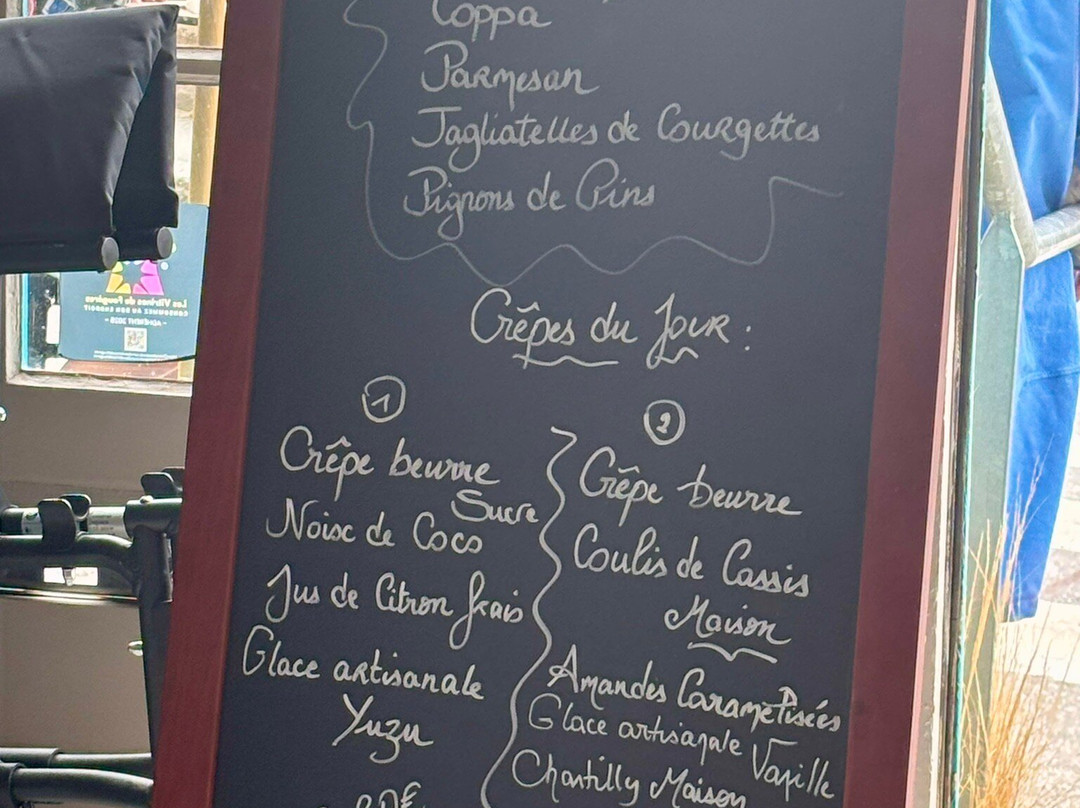 Coppa
Parmesan
Tagliatelles de Courgettes
Pignons de Pins
Crêpes du Jour :
1
Crêpe beurre
Sucre
Noix de Coco
Jus de Citron frais
Glace artisanale
Yuzu
2
Crêpe beurre
Coulis de Cassis
Maison
Amandes Caramélisées
Glace artisanale Vanille
Chantilly Maison
Les Vitrines de Fougères
CONSOMMEZ AU BON ENDROIT
- ADHÉRENT 2025 -